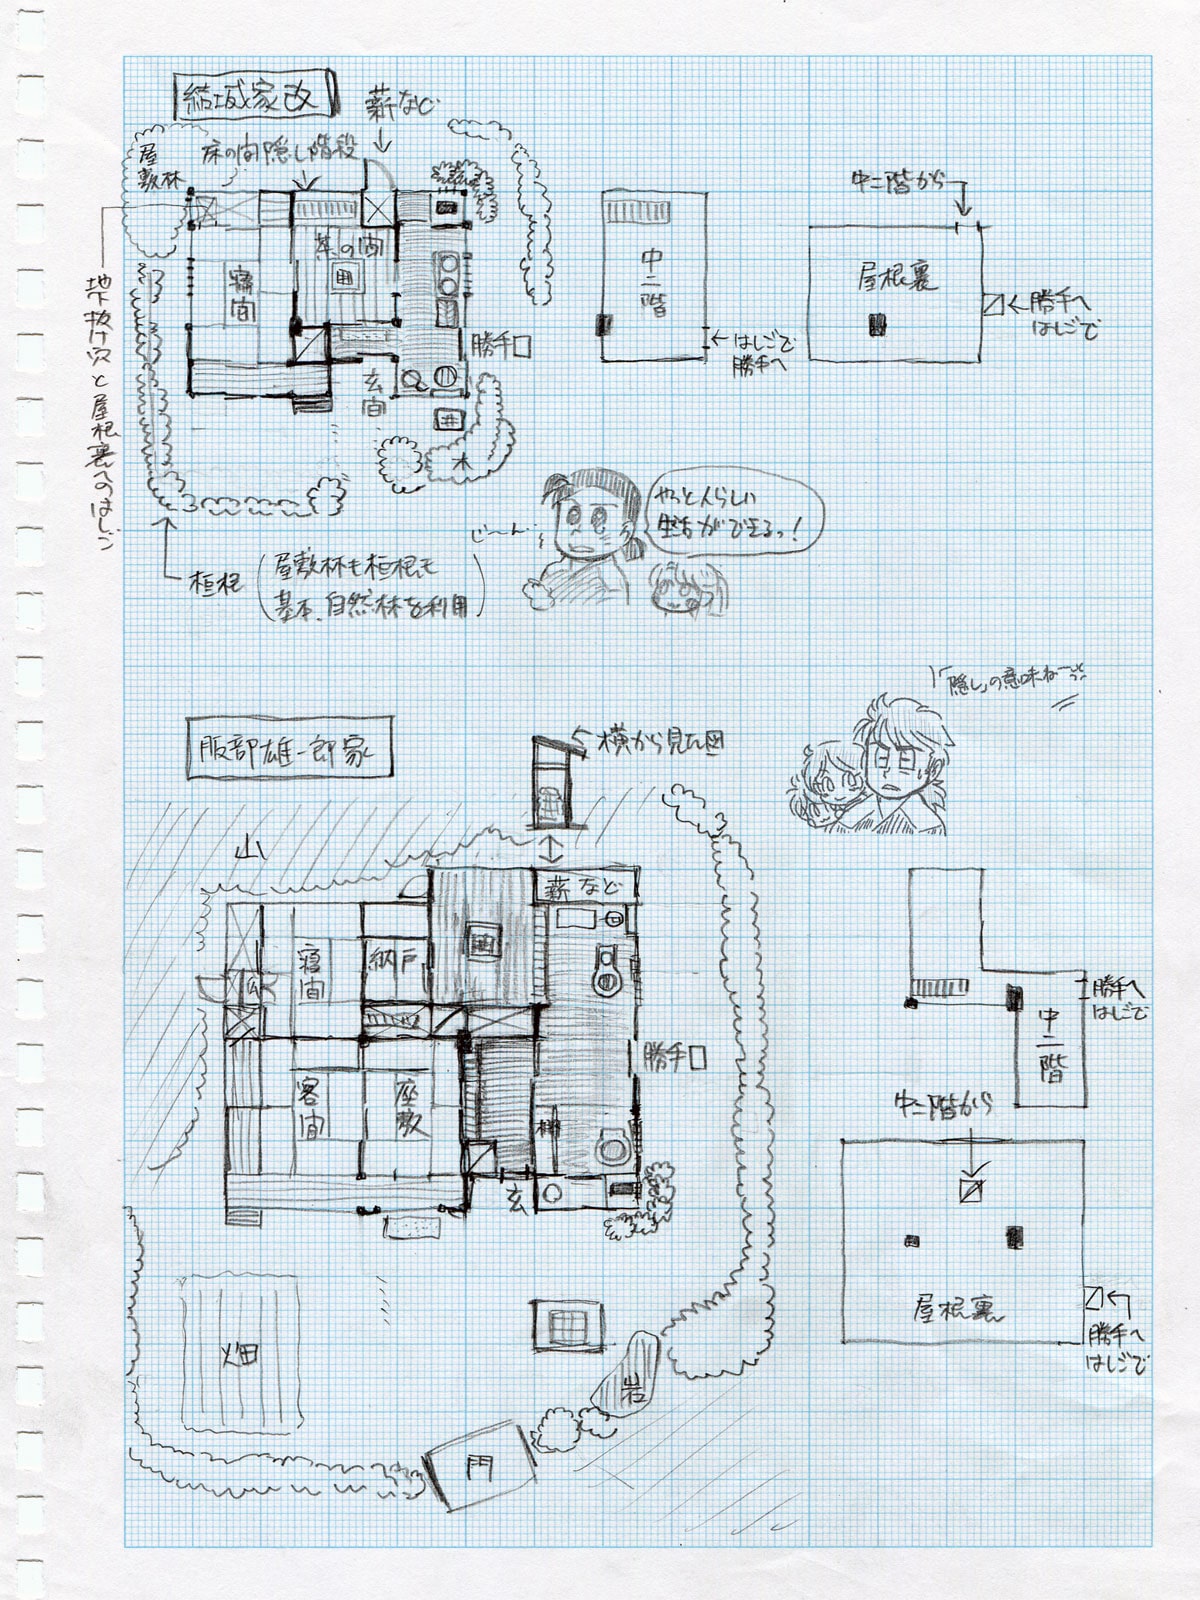 結城家改
薪など
床の間隠し階段
屋
敷林
茶の間
寝
間
勝手口
玄
関
木
地下抜け穴と屋根裏へのはしご
垣根
屋敷林も垣根も
基本、自然林を利用
中二階
はしごで
勝手へ
中二階から
屋根裏
勝手へ
はしごで
じ〜ん
やっと人らしい
生活ができるっ!
「隠し」の意味ねーっ
服部雄一郎家
横から見た図
山
薪など
寝間
納戸
仏
勝手口
客間
座敷
棚
玄
畑
岩
門
勝手へ
はしごで
中二階
中二階から
屋根裏
勝手へ
はしごで